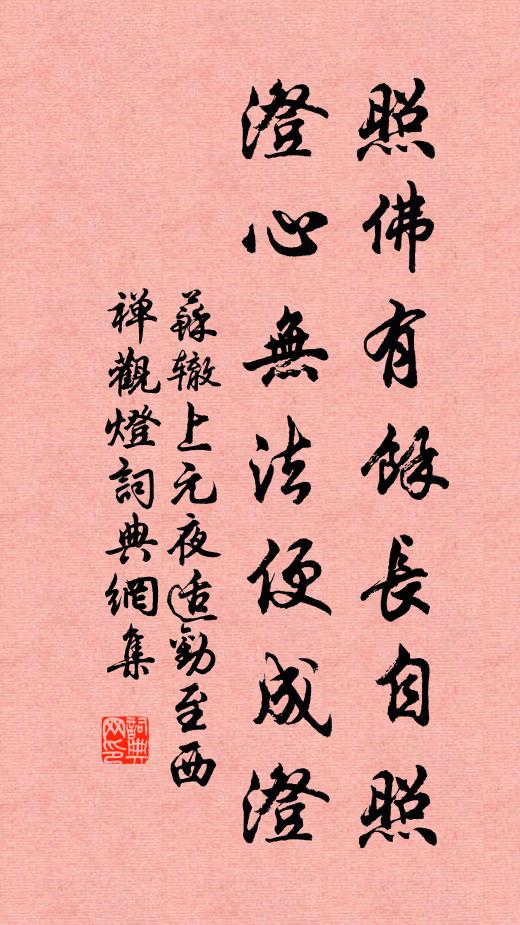 照佛有餘長自照
澄心無法便成澄
蘇轍上元夜适勸至西
禅觀燈詞典網集
詞典網印